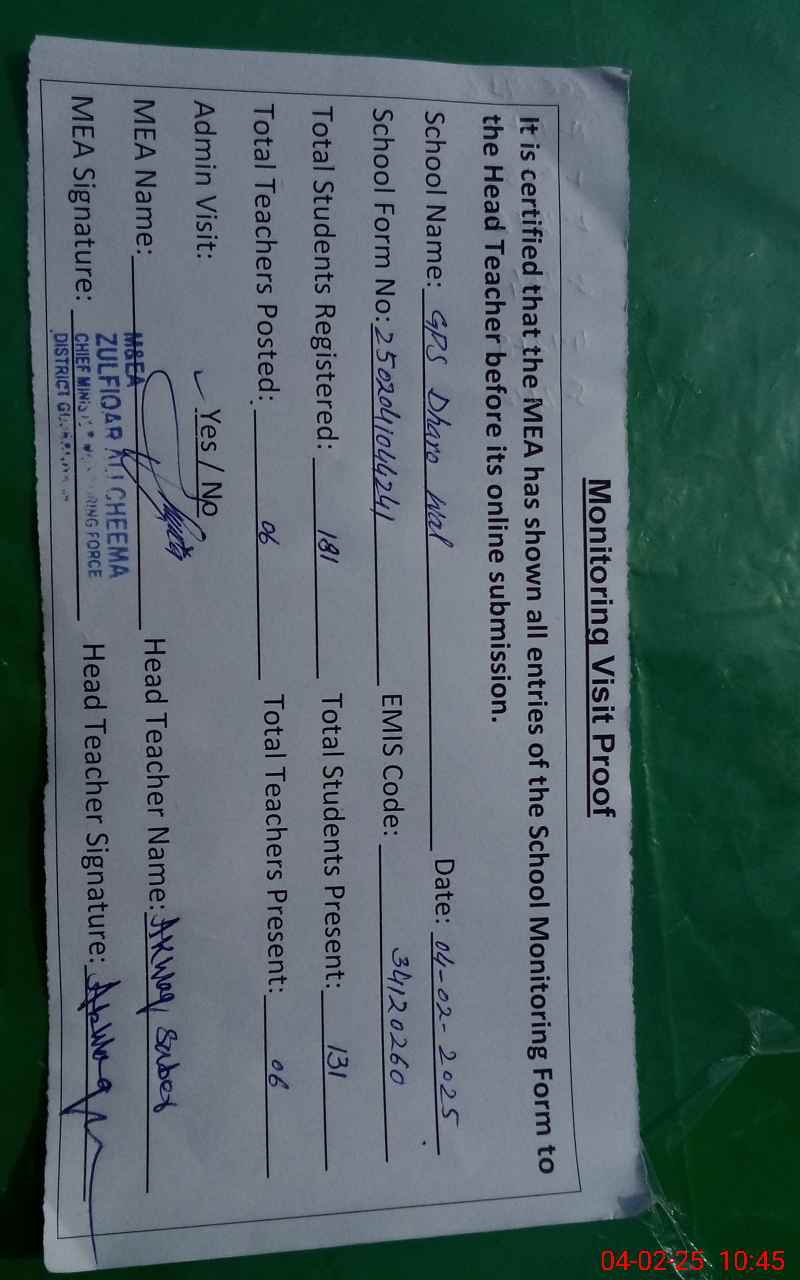 Monitoring Visit Proof
It is certified that the MEA has shown all entries of the School Monitoring Form to
the Head Teacher before its online submission.
School Name: GPS Dharo Wal Date: 04-02-2025
School Form No: 250204104424 EMIS Code: 34120260
Total Students Registered: 181 Total Students Present: 131
Total Teachers Posted: 06 Total Teachers Present: 06
Admin Visit: ✓ Yes / No
MEA Name: Head Teacher Name:
M&EA
ZULFIQAR ALI CHEEMA
CHIEF MINISTER MONITORING FORCE
DISTRICT
MEA Signature: Head Teacher Signature:
04-02-25 10:45